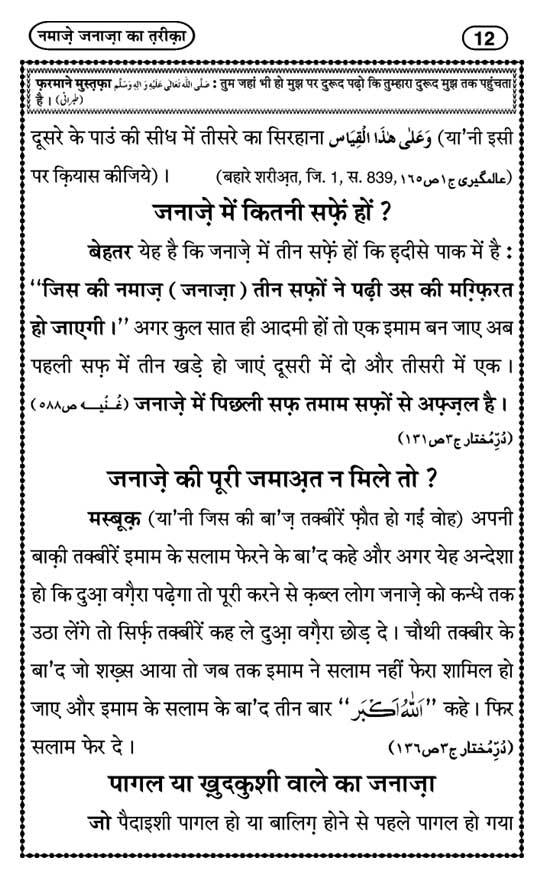 नमाज़े जनाज़ा का त़रीक़ा
12
फ़रमाने मुस्त़फ़ा صَلَّى اللهُ تَعَالٰى عَلَيْهِ وَاٰلِهٖ وَسَلَّم : तुम जहां भी हो मुझ पर दुरूद पढ़ो कि तुम्हारा दुरूद मुझ तक पहुंचता
है । (طبرانی)
दूसरे के पाउं की सीध में तीसरे का सिरहाना وَعَلٰى هٰذَا الْقِيَاس (या’नी इसी
पर क़ियास कीजिये) । (बहारे शरीअ़त, जि. 1, स. 839, عالمگیری ج۱ص۱٦٥)
जनाज़े में कितनी सफ़ें हों ?
बेहतर येह है कि जनाज़े में तीन सफ़ें हों कि ह़दीसे पाक में है :
‘‘जिस की नमाज़ ( जनाज़ा ) तीन सफ़ों ने पढ़ी उस की मग़्फ़िरत
हो जाएगी ।’’ अगर कुल सात ही आदमी हों तो एक इमाम बन जाए अब
पहली सफ़ में तीन खड़े हो जाएं दूसरी में दो और तीसरी में एक ।
(غُنْیه ص٥٨٨) जनाज़े में पिछली सफ़ तमाम सफ़ों से अफ़्ज़ल है ।
(دُرِّمُختار ج۳ص۱۳۱)
जनाज़े की पूरी जमाअ़त न मिले तो ?
मस्बूक़ (या’नी जिस की बा’ज़ तक्बीरें फ़ौत हो गईं वोह) अपनी
बाक़ी तक्बीरें इमाम के सलाम फेरने के बा’द कहे और अगर येह अन्देशा
हो कि दुआ़ वग़ैरा पढ़ेगा तो पूरी करने से क़ब्ल लोग जनाज़े को कन्धे तक
उठा लेंगे तो सिर्फ़ तक्बीरें कह ले दुआ़ वग़ैरा छोड़ दे । चौथी तक्बीर के
बा’द जो शख़्स आया तो जब तक इमाम ने सलाम नहीं फेरा शामिल हो
जाए और इमाम के सलाम के बा’द तीन बार ‘‘اَللهُ اَكْبَر’’ कहे । फिर
सलाम फेर दे । (دُرِّمُختار ج۳ص۱۳٦)
पागल या ख़ुदकुशी वाले का जनाज़ा
जो पैदाइशी पागल हो या बालिग़ होने से पहले पागल हो गया